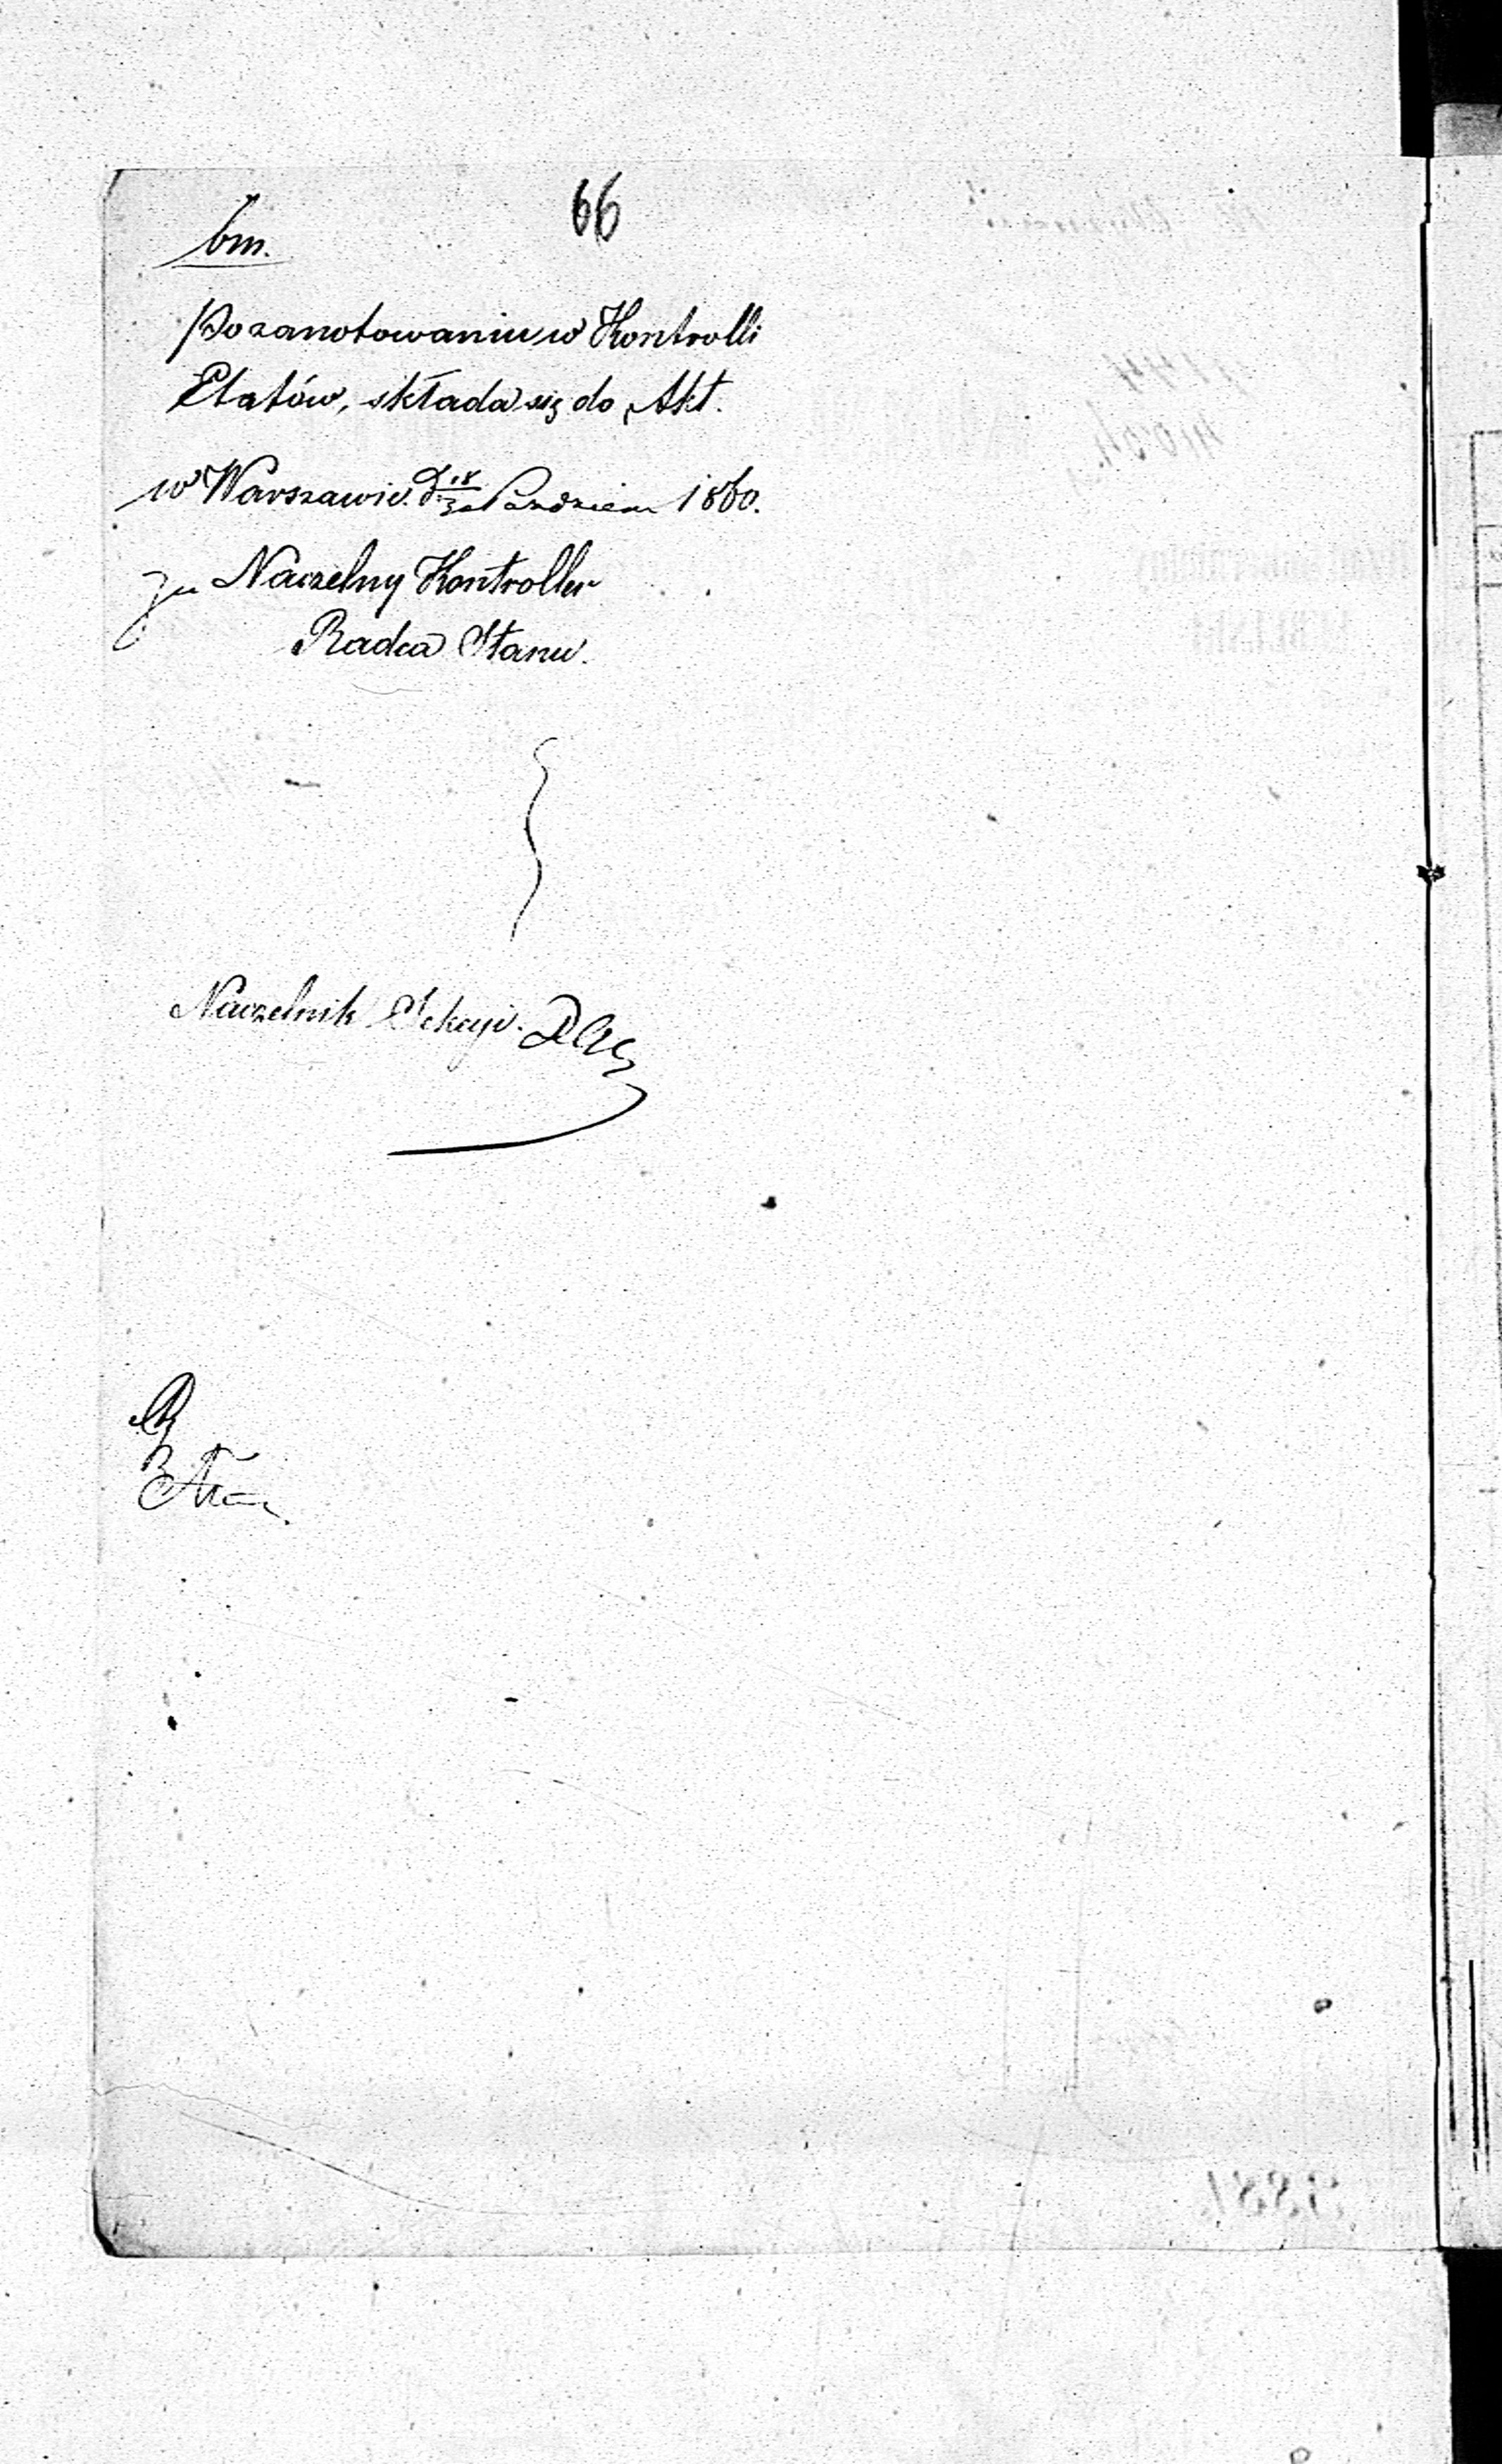 66
bm.
Po zanotowaniu w Kontrolli
Etatów, składa się do Akt.
w Warszawie d. 18/30 Paździer 1860.
za Naczelny Kontroller
Radca Stanu.
Naczelnik Sekcyi.